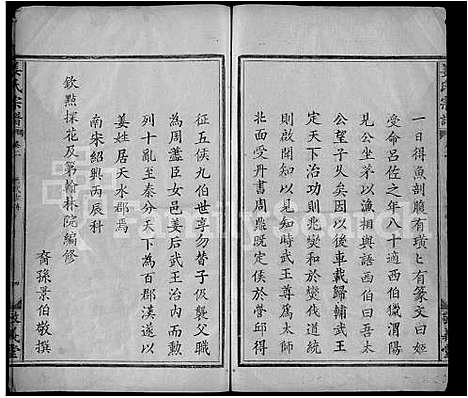 一日得魚剖腹有璜上有篆文曰姬
受命呂佐之年八十適西伯獵渭陽
見公坐茅以漁相與語西伯曰吾太
公望子久矣因以後車載歸輔武王
定天下治功則兆變和於燮伐道統
則見於丹書周鼎既定後於營丘得
北面受見知時武王尊為尚父太師
征五侯九伯世享勿替子伋襲父職
為周藎臣女邑姜后武王治內而勳
列十亂至泰分天下為百郡漢遂以
姜姓居天水郡焉
南宋紹興丙辰科
欽點探花及第翰林院編修
裔孫景伯敬撰
姜氏宗譜